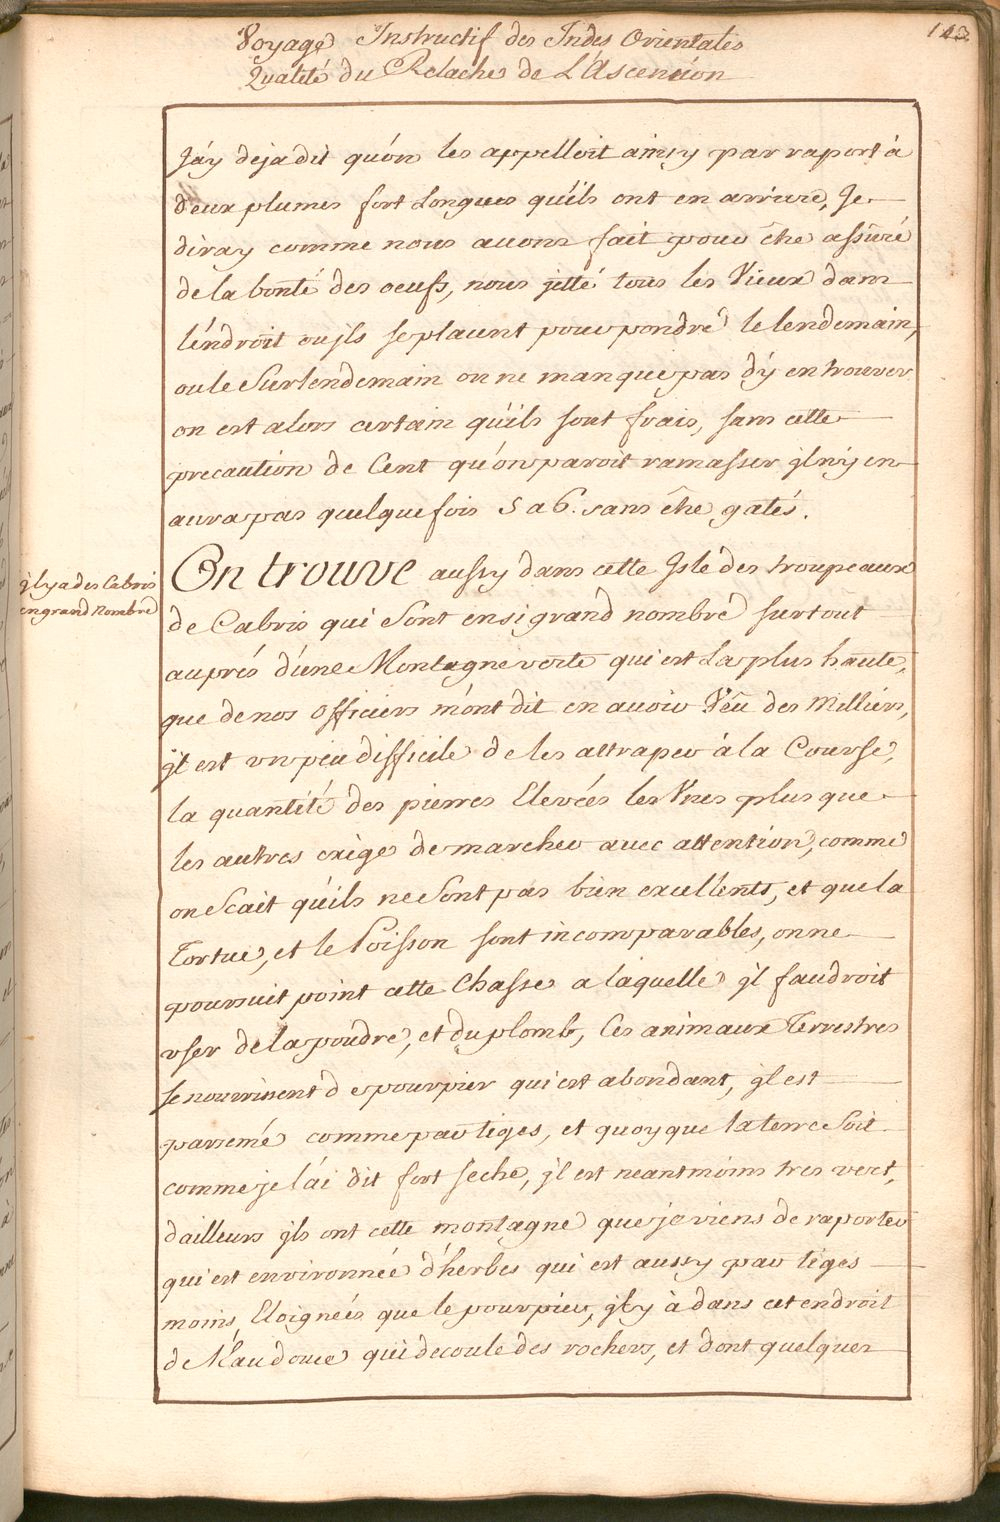 Voyage Instructif des Indes Orientales
Qualité du Relache de L'Ascencion
J'ay deja dit qu'on les appelloit ainsy par raport à
deux plumes fort Longues qu'ils ont en arriere, Je
diray comme nous avons fait pour être assûré
de la bonté des oeufs, nous jetté tous les Vieux dans
l'endroit ou jls se plaisent pour pondre le lendemain,
ou le Surlendemain on ne manque pas d'y en trouver
on est alors certain qu'ils sont frais, sans cette
precaution de Cent qu'on paroit ramasser jl n'y en
aura pas quelque fois 5 a 6. sans être gatés.
jl y a des Cabris
en grand Nombre
On trouve aussy dans cette Isle des troupeaux
de Cabris qui Sont en si grand nombre surtout
auprés d'une Montagne verte qui est La plus haute,
que de nos Officiers m'ont dit en avoir Vêu des Milliers,
jl est un peu difficile de les attraper à la Course,
la quantité des pierres Elevées les Unes plus que
les autres exige de marcher avec attention, comme
on Scait qu'ils ne Sont pas bien excellents, et que la
Tortue, et le Poisson sont incomparables, on ne
poursuit point cette Chasse a laquelle jl faudroit
user de la poudre, et du plomb, Ces animaux Terrestres
se nourrissent de pourpier qui est abondant, jl est
parsemé comme par tiges, et quoy que la terre Soit
comme je l'ai dit fort seche, jl est neantmoins tres vert,
dailleurs jls ont cette montagne que je viens de raporter
qui est environnée d'herbes qui est aussy par tiges
moins Eloignées que le pourpier, jl y à dans cet endroit
de l'Eau douce qui decoule des rochers, et dont quelques